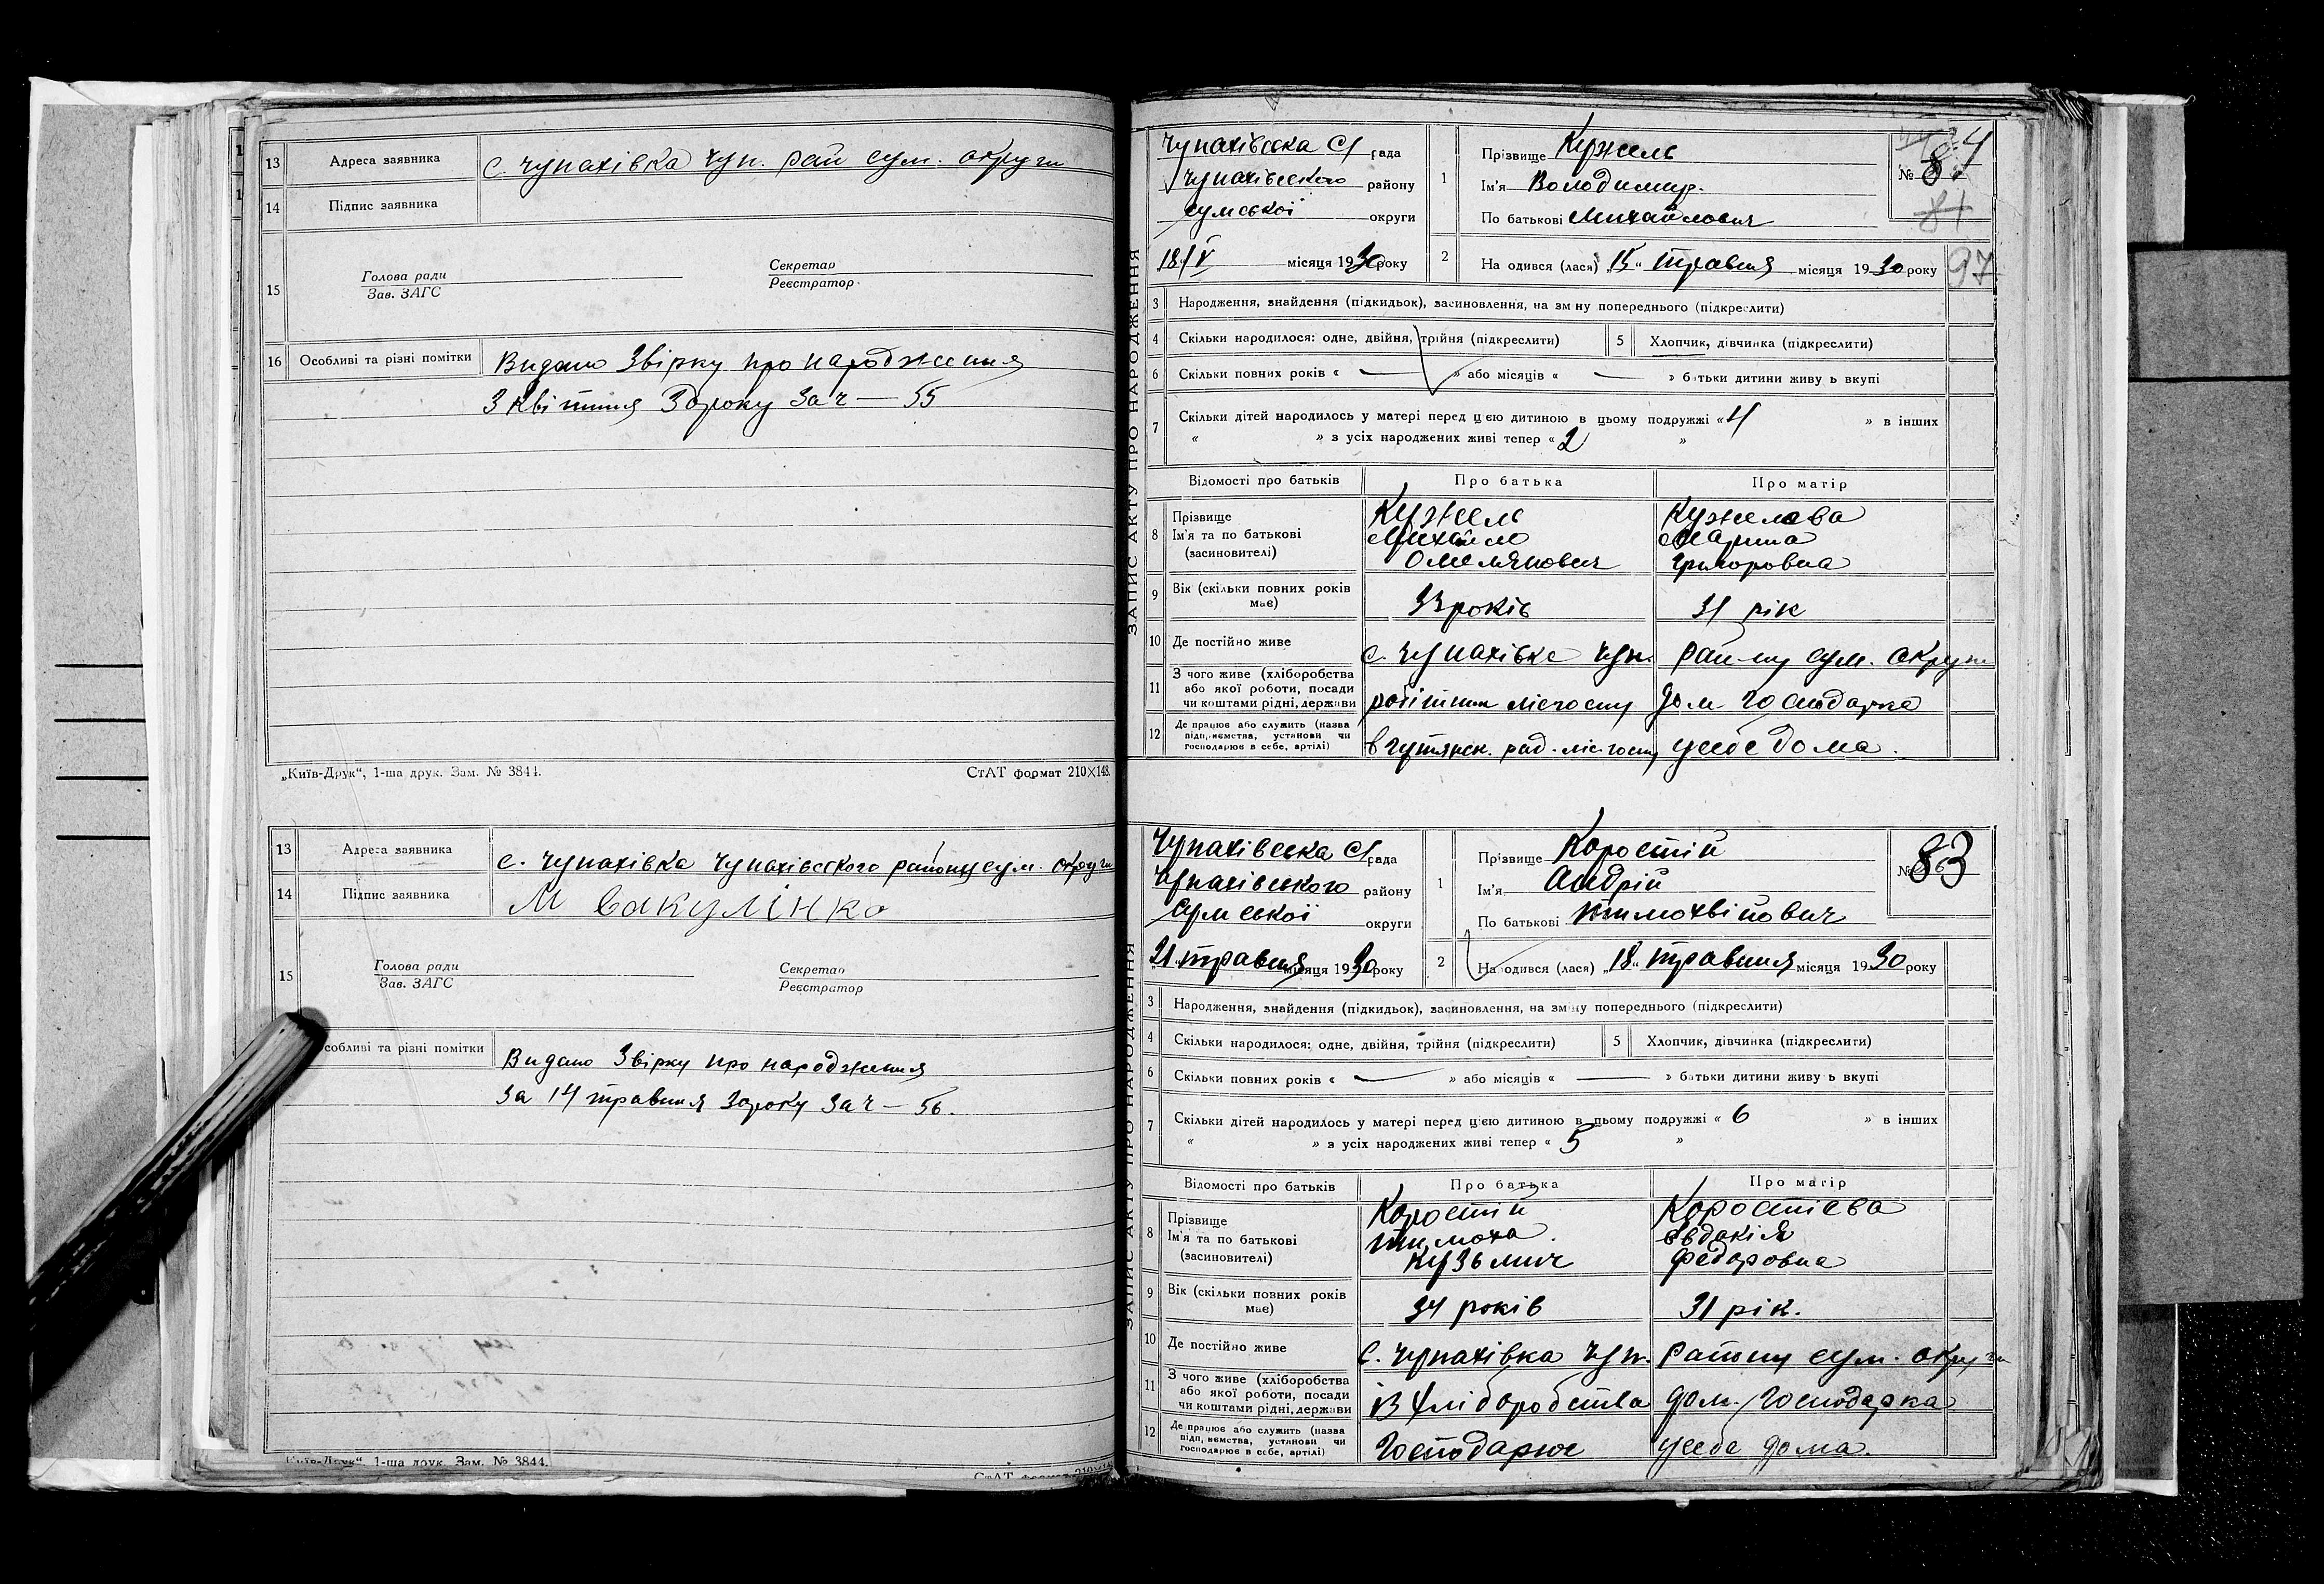 13 Адреса заявника с. Чупахівка Чуп. рай сум. округи
14 Підпис заявника
15 Голова ради Секретар
Зав. ЗАГС Реєстратор
16 Особливі та різні помітки Видано Звірку про народження
3 квітния 30року За Ч — 55
„Київ-Друк“, 1-ша друк. Зам. № 3844. СтАТ формат 210×148.
13 Адреса заявника с. Чупахівка Чупахівського району сум. округи
14 Підпис заявника М Вакулінко
15 Голова ради Секретар
Зав. ЗАГС Реєстратор
собливі та різні помітки Видано Звірку про народження
За 14 травния 30року За Ч — 56.
Київ-Друк“, 1-ша друк. Зам. № 3844.
СтАТ формат 210×148
ЗАПИС АКТУ ПРО НАРОДЖЕННЯ
Чупахівська С/рада
Чупахівського району
Сумської округи
18/V місяця 1930року
1 Прізвище Кужель
Ім'я Володимир.
По батькові Михайлович
№ 84
81
2 На одився (лася) „15“ травния місяця 1930 року
97
3 Народження, знайдення (підкидьок), засиновлення, на зм ну попереднього (підкреслити)
4 Скільки народилося: одне, двійня, трійня (підкреслити) 5 Хлопчик, дівчинка (підкреслити)
6 Скільки повних років « — » або місяців « — » батьки дитини живу ь вкупі
7 Скільки дітей народилось у матері перед цією дитиною в цьому подружжі «4 » в інших
« » з усіх народжених живі тепер « 2 »
Відомості про батьків Про батька Про матір
8 Прізвище Кужель Кужелєва
Ім'я та по батькові Михайло Марина
(засиновителі) Омелянович Григоровна
9 Вік (скільки повних років має) 33років 31 рік
10 Де постійно живе с. Чупахівке Чуп. рай-ну сум. округи
11 З чого живе (хліборобства
або якої роботи, посади
чи коштами рідні, держави робітник лісгоспу дом господарка
12 Де працює або служить (назва
підприємства, установи чи
господарює в себе, артілі) в гутянск. рад. лісгоспу усебе дома.
ЗАПИС АКТУ ПРО НАРОДЖЕННЯ
Чупахівська С/рада
Чупахівського району
Сумської округи
21 травния місяця 1930року
1 Прізвище Коростій
Ім'я Андрій
По батькові Тимохвійович
№ 83
2 Народився (лася) „18“ травния місяця 1930 року
3 Народження, знайдення (підкидьок), засиновлення, на зміну попереднього (підкреслити)
4 Скільки народилося: одне, двійня, трійня (підкреслити) 5 Хлопчик, дівчинка (підкреслити)
6 Скільки повних років « — » або місяців « — » батьки дитини живу ь вкупі
7 Скільки дітей народилось у матері перед цією дитиною в цьому подружжі « 6 » в інших
« » з усіх народжених живі тепер « 5 »
Відомості про батьків Про батька Про матір
8 Прізвище Коростій Коростієва
Ім'я та по батькові Тимоха. Євдокія
(засиновителі) Кузьмич Федоровна
9 Вік (скільки повних років має) 34 років 31 рік.
10 Де постійно живе с. Чупахівка Чуп. району сум. округи
11 З чого живе (хліборобства
або якої роботи, посади
чи коштами рідні, держави Із хліборобства дом. господарка
12 Де працює або служить (назва
підприємства, установи чи
господарює в себе, артілі) Господарює усебе дома.